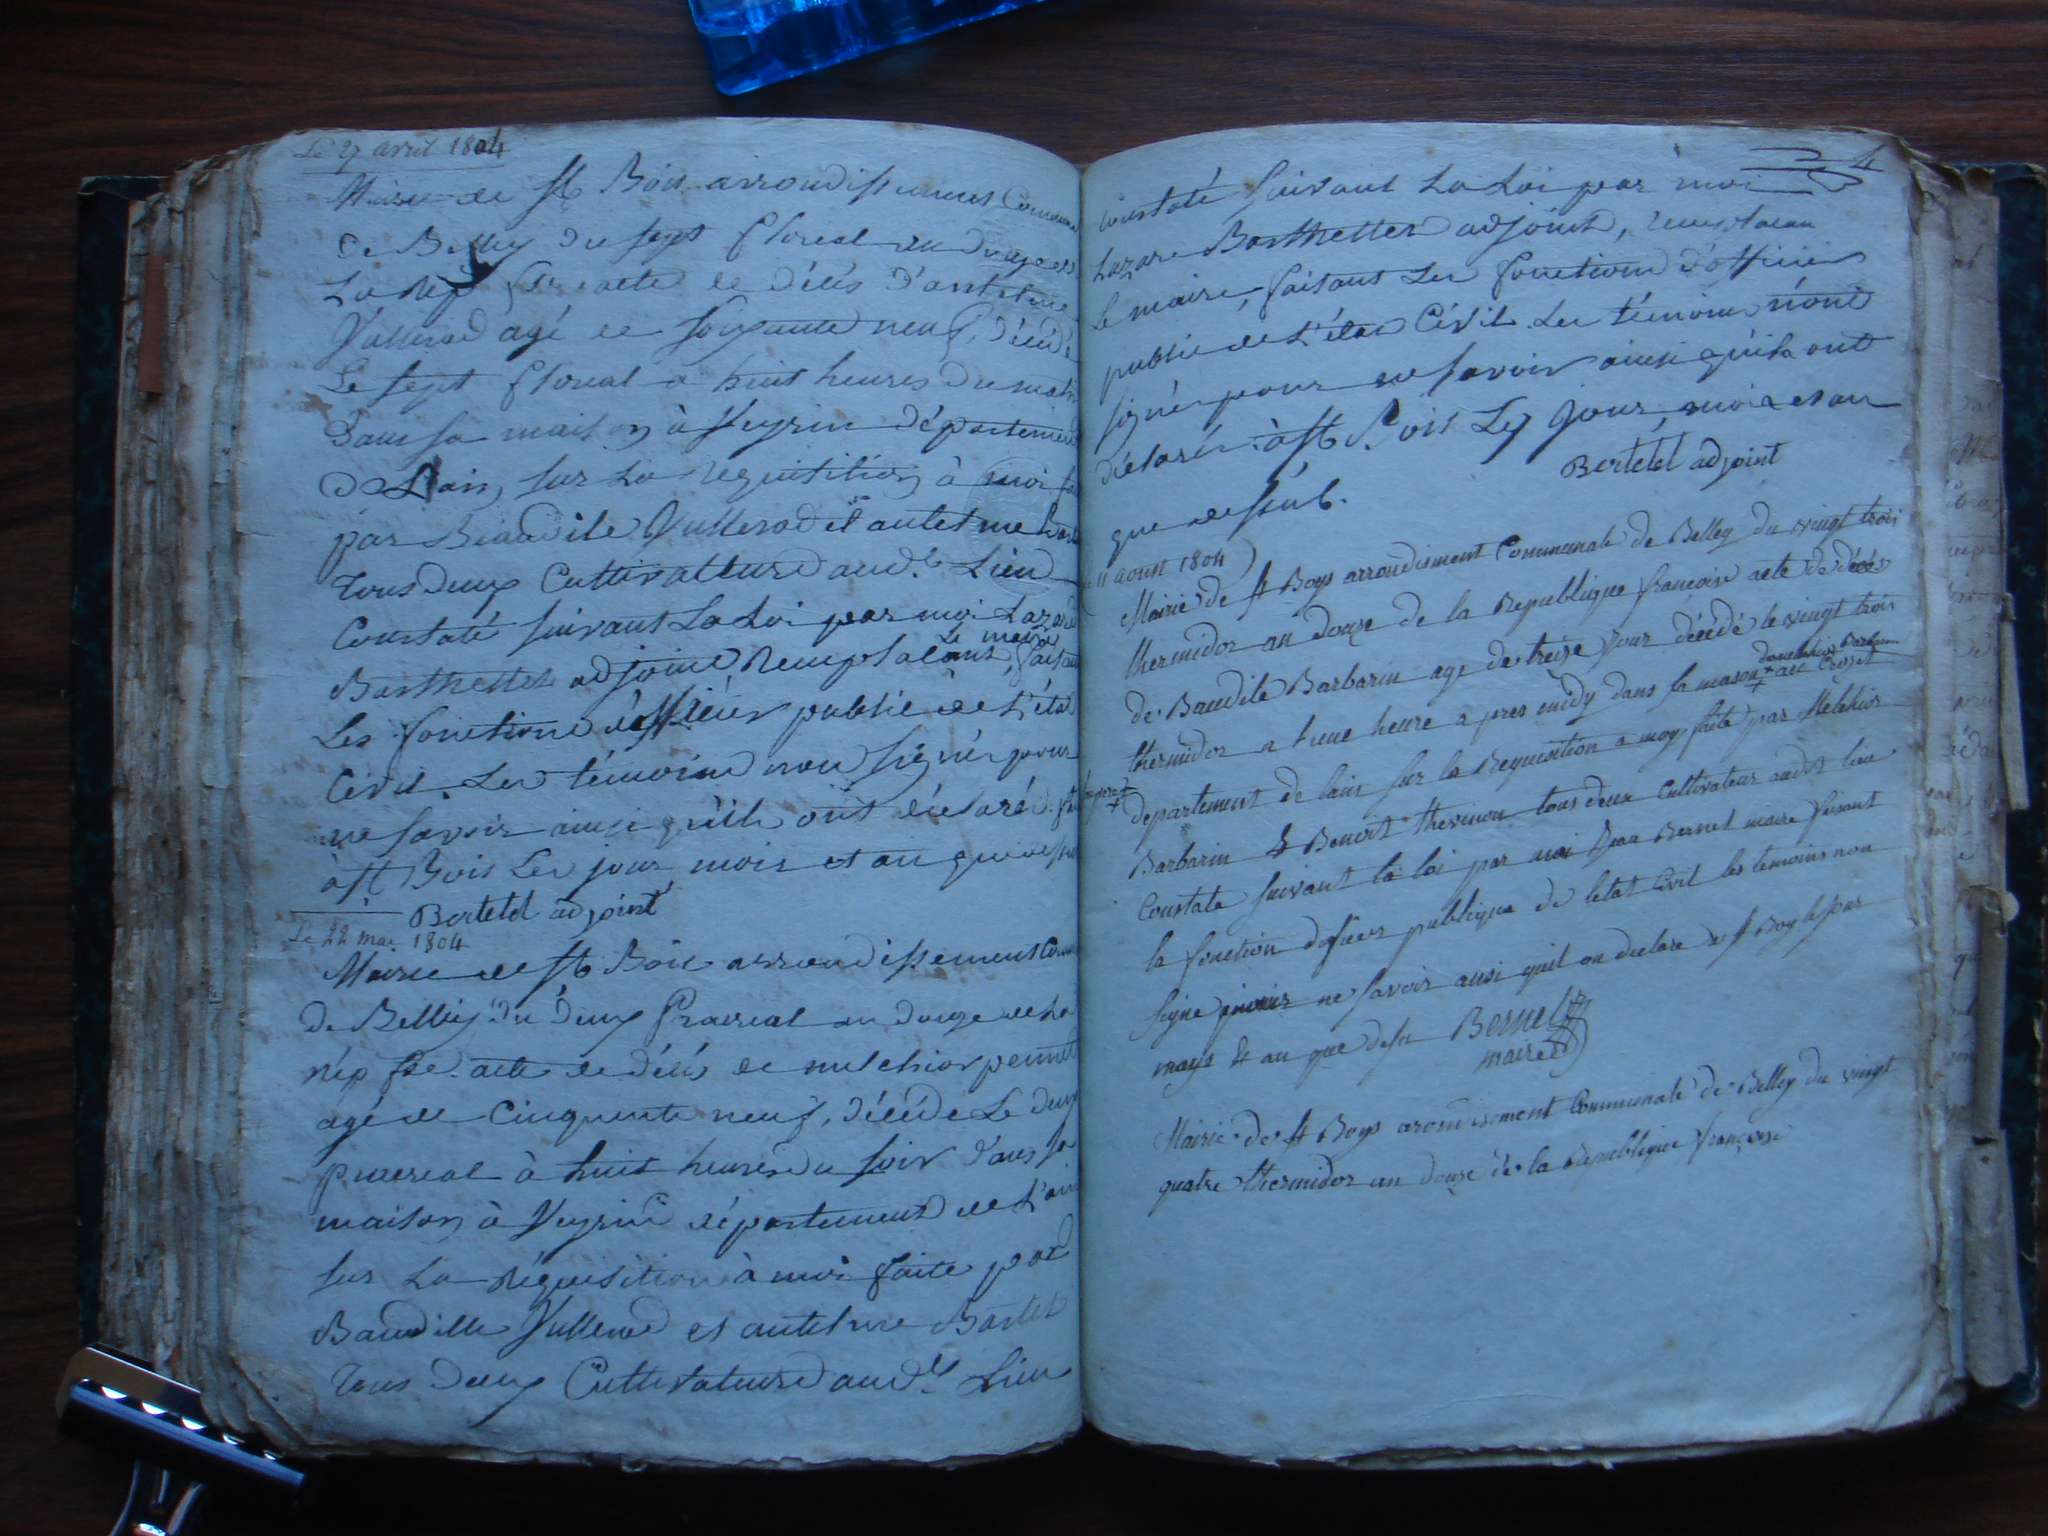 Le 27 avril 1804
Mairie de St Bois arrondissement Commun
de Belley du sept floreal an douze de
La rép fse acte de décès d'anthelme
Vullerod agé de soixante neuf, décédé
Le sept floreal a huit heures du matin
Dans sa maison à Veyrin département
de Lain, sur La requisition à moi
par Baudile Vullerod et antelme
Tous deux Cultivatteurs aud.t Lieu
Constaté suivant La Loi par moi Lazare
le maire
Barthettet adjoint, Remplacant, faisant
Les fonctions d'officier public de L'état
Civil. Les témoins non signér pour
ne savoir ainsi qu'ils ont déclaré.
à St Bois Les jour mois et an que dessus
Bertetet adjoint
Le 22 mai 1804
Mairie de St Bois arrondissement Comm
de Belley du deux prairial an douze de La
rép fse. acte de décés de melchior pennet
agé de Cinquante neuf, décédé Le deux
prereal à huit heures du soir dans sa
maison à Veyrin département de L'ain
sur La réquisition à moi faite par
Baudille Vullerod et antelme Bartet
Tous deux Cultivateurs aud.t Lieu
4
constaté suivant La Loi par moi
Lazare Barthettet adjoint, remplacan
Le maire, faisant Les fonctions d'officier
public de L'état Civil. Les témoins n'ont
signér pour ne savoir ainsi qu'ils ont
déclarér. à St Bois Les jour, mois et an
que dessus.
Bertetet adjoint
11 aoust 1804
Mairie de St Boys arrondisment Communale de Belley du vingt trois
thermidor an douze de la Republique francoise acte de décés
de Baudile Barbarin age de treize jour décédé le vingt trois
thermidor a lune heure a pres midy dans la maison + au Crozet
departement de lain sur la Requisition a moy faite par Melchior
Barbarin & Benoit thevenon tous deux Cultivateur audit lieu
Constate suivant la loi par moi Jean Bernet maire faisant
la fonction dofficier publique de letat Civil les temoins non
signe pour ne savoir ausi quil on declare a St Boy le jour
mays & an que desu Bernet
maire
Mairie de St Boys arondisement Communale de Belley du vingt
quatre thermidor an douze de la republique françoise